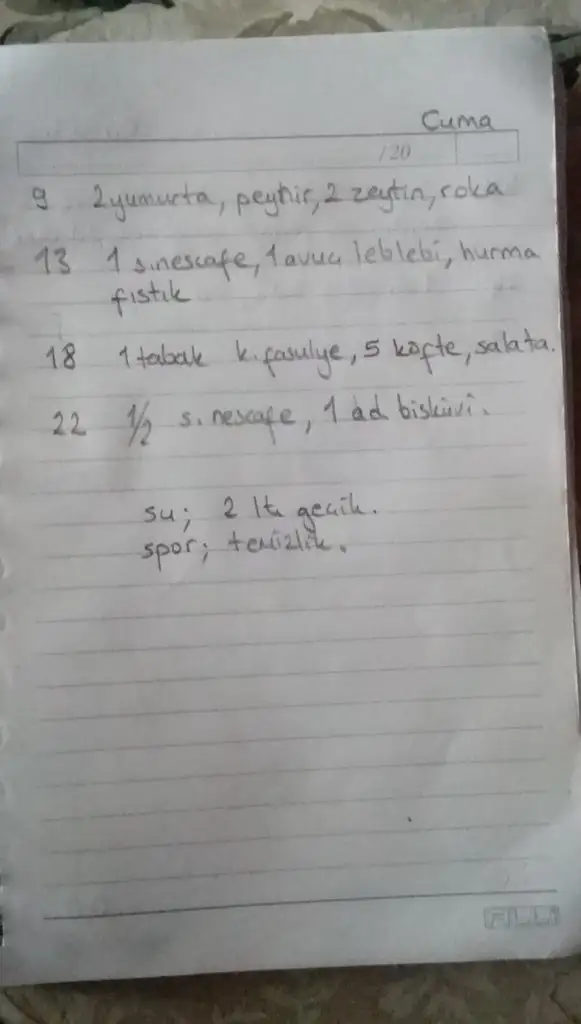 Cuma
/20
9 2 yumurta, peynir, 2 zeytin, roka
13 1 s.nescafe, 1 avuç leblebi, hurma
fıstık
18 1 tabak k.fasulye, 5 köfte, salata.
22 1/2 s. nescafe, 1 ad bisküvi.
su; 2 lt
spor; temizlik.
FİLLİ